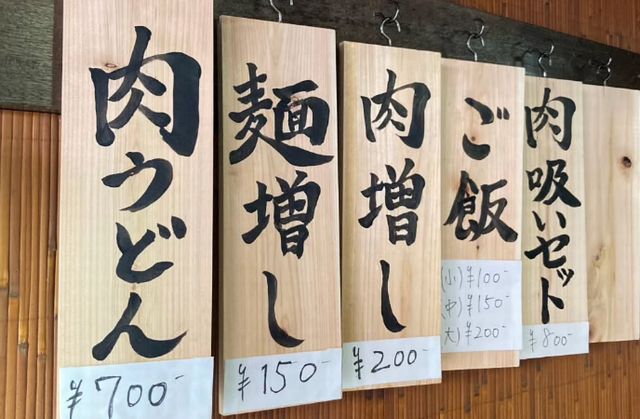 肉うどん
¥700-
麺増し
¥150-
肉増し
¥200-
ご飯
(小)¥100-
(中)¥150-
(大)¥200-
肉吸いセット
¥800-